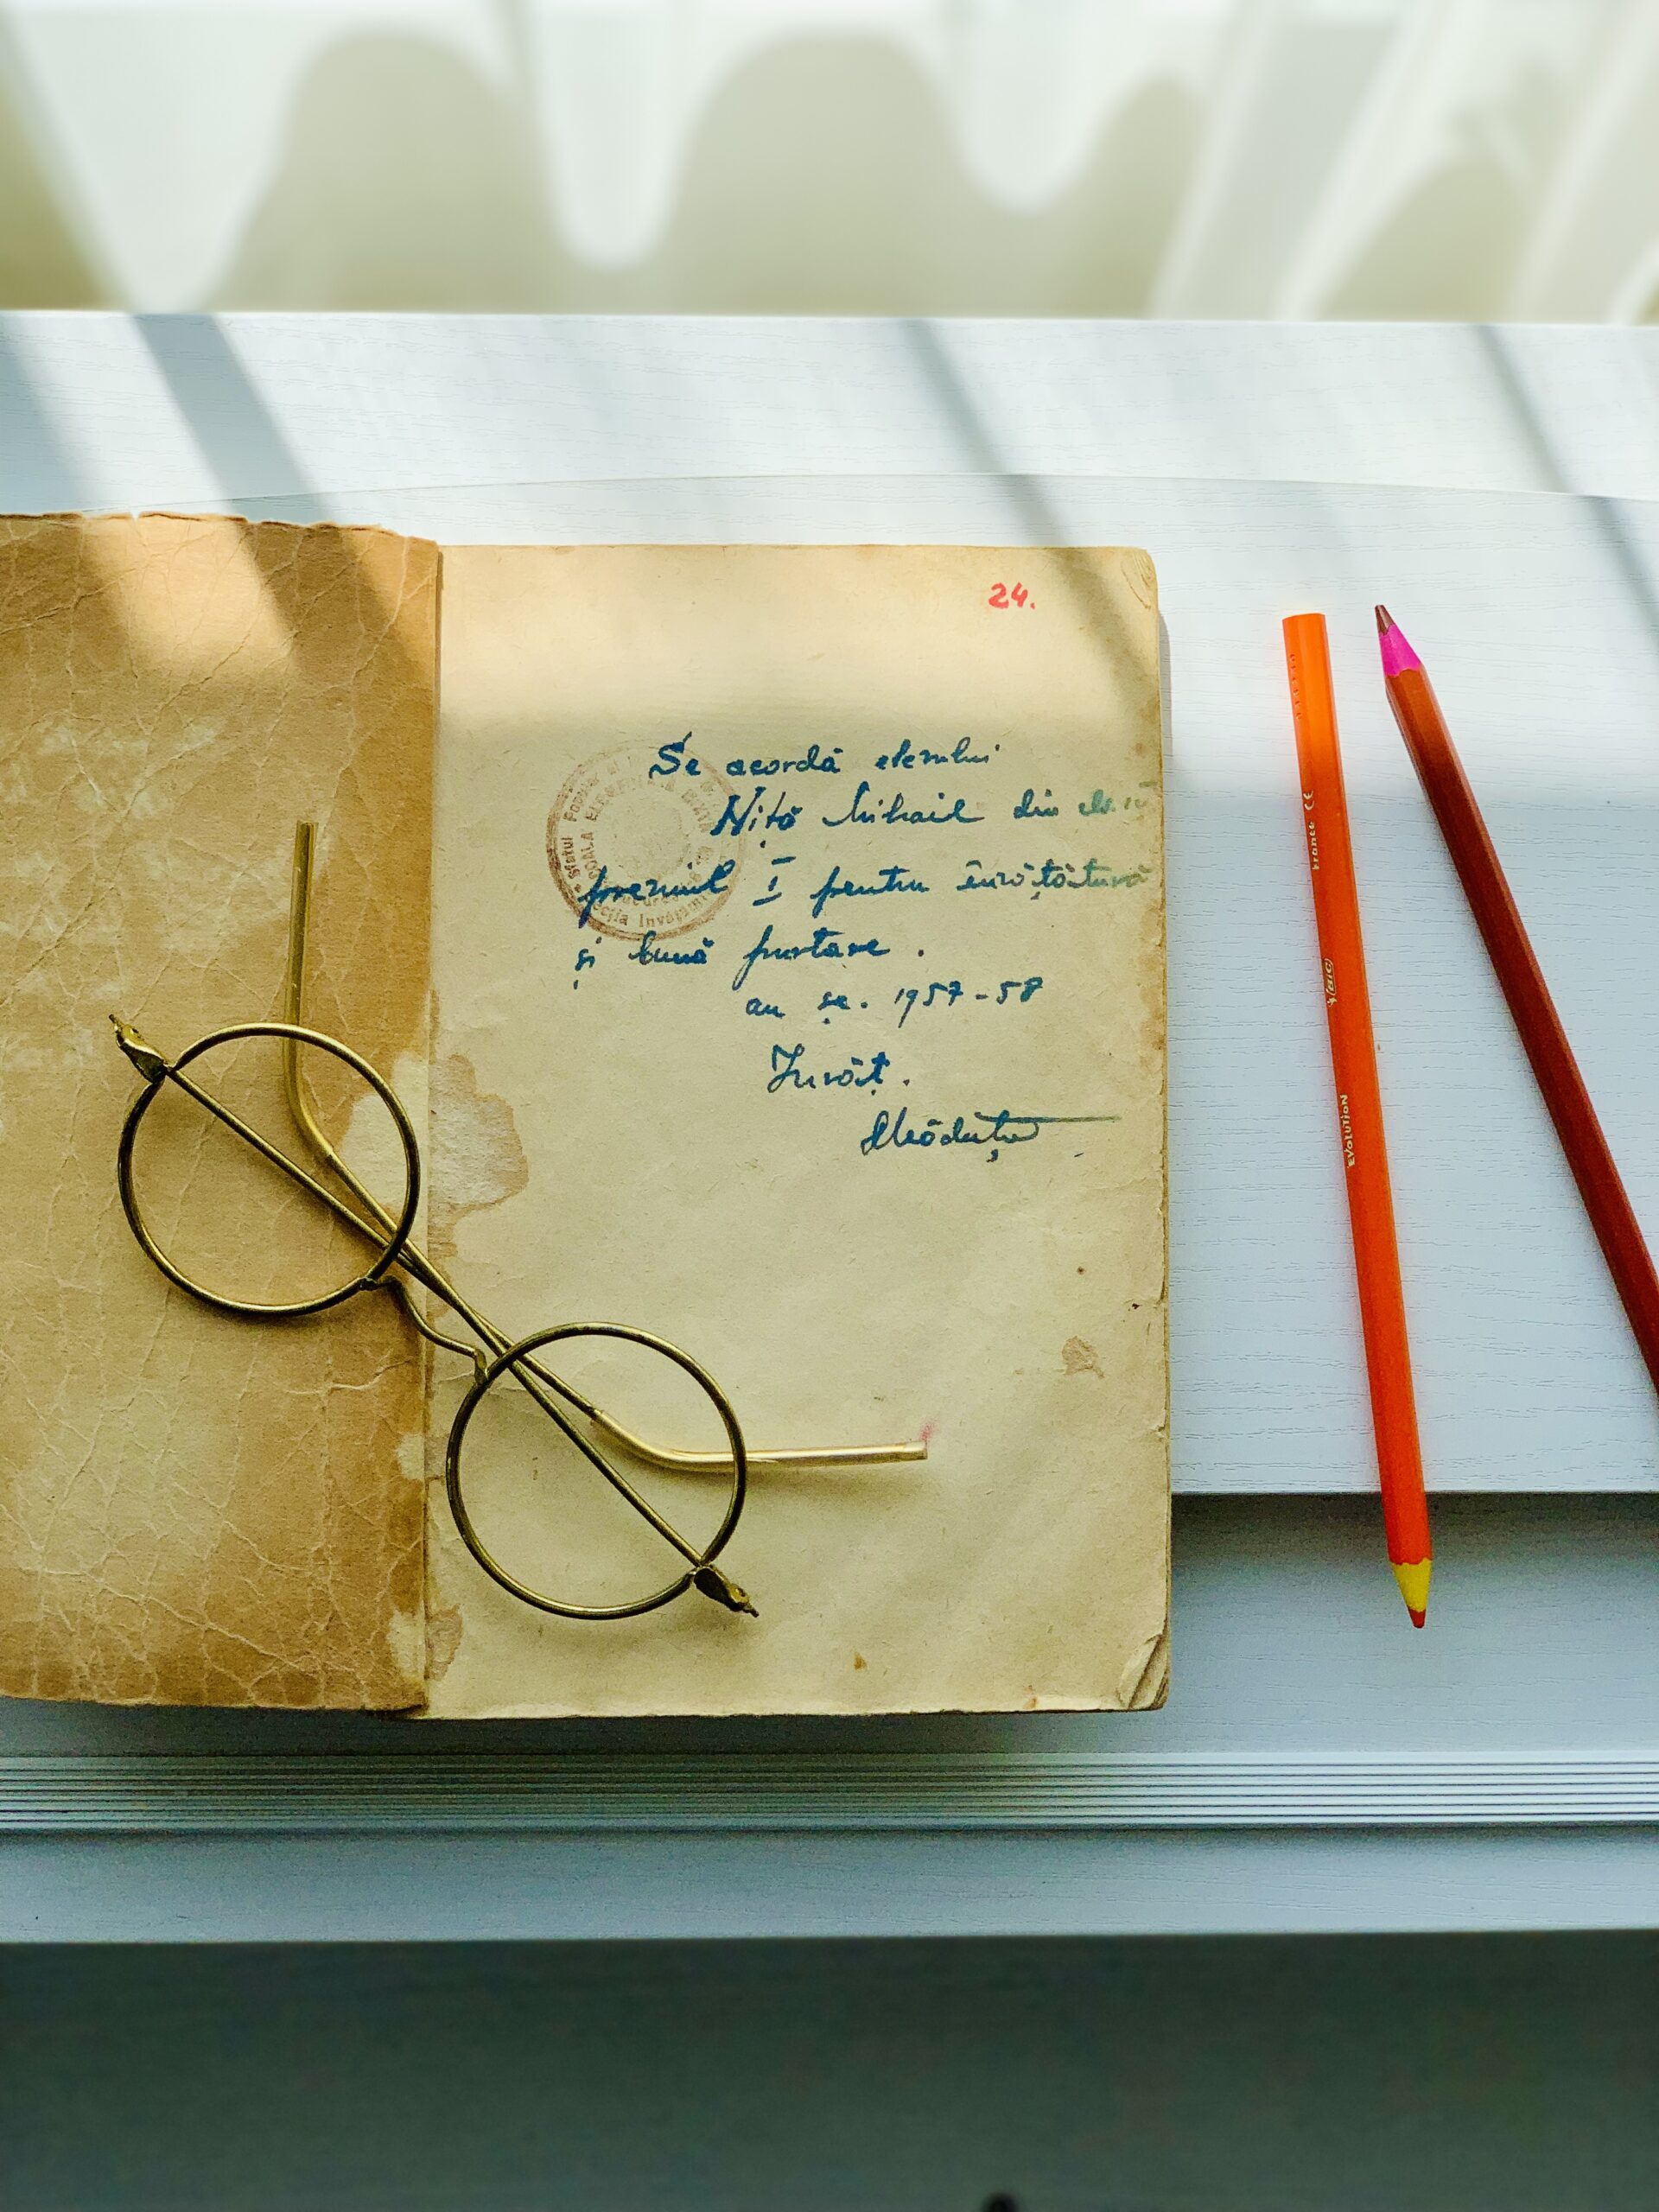 24.
Se acordă elevului
Niță Mihail din cl.
premiul I pentru învățătură
și bună purtare.
an șc. 1957-58
Învăț.
Sfatul Popular
ȘCOALA ELEMENTARĂ
Secția Invățămî
France CE
BIC
EVOLUTION